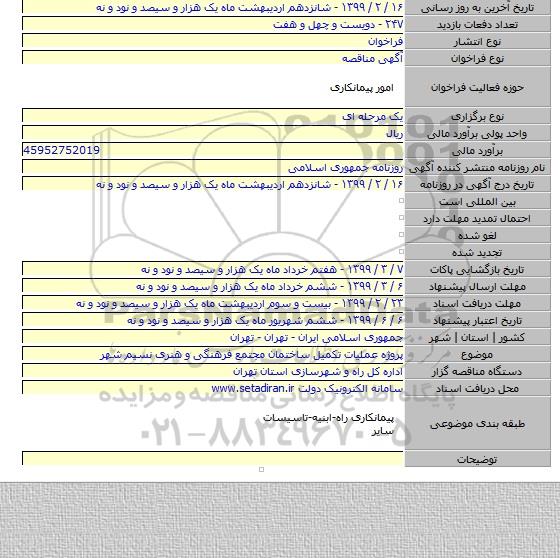 تاریخ آخرین به روز رسانی ۱۶ / ۲ / ۱۳۹۹ - شانزدهم اردیبهشت ماه یک هزار و سیصد و نود و نه
تعداد دفعات بازدید ۲۴۷ - دویست و چهل و هفت
نوع انتشار فراخوان
نوع فراخوان آگهی مناقصه
حوزه فعالیت فراخوان امور پیمانکاری
نوع برگزاری یک مرحله ای
واحد پولی برآورد مالی ریال
برآورد مالی 45952752019
نام روزنامه منتشر کننده آگهی روزنامه جمهوری اسلامی
تاریخ درج آگهی در روزنامه ۱۶ / ۲ / ۱۳۹۹ - شانزدهم اردیبهشت ماه یک هزار و سیصد و نود و نه
بین المللی است
احتمال تمدید مهلت دارد
لغو شده
تجدید شده
تاریخ بازگشایی پاکات ۷ / ۳ / ۱۳۹۹ - هفتم خرداد ماه یک هزار و سیصد و نود و نه
مهلت ارسال پیشنهاد ۶ / ۳ / ۱۳۹۹ - ششم خرداد ماه یک هزار و سیصد و نود و نه
مهلت دریافت اسناد ۲۳ / ۲ / ۱۳۹۹ - بیست و سوم اردیبهشت ماه یک هزار و سیصد و نود و نه
تاریخ اعتبار پیشنهاد ۶ / ۶ / ۱۳۹۹ - ششم شهریور ماه یک هزار و سیصد و نود و نه
کشور | استان | شهر جمهوری اسلامی ایران - تهران - تهران
موضوع پروژه عملیات تکمیل ساختمان مجتمع فرهنگی و هنری نسیم شهر
دستگاه مناقصه گزار اداره کل راه و شهرسازی استان تهران
محل دریافت اسناد سامانه الکترونیک دولت www.setadiran.ir
پایگاه اطلاع رسانی مناقصه و مزایده
طبقه بندی موضوعی پیمانکاری راه-ابنیه-تاسیسات
سایر
۰۲۱-۸۸۳۴۹۶۷۰-۵
توضیحات